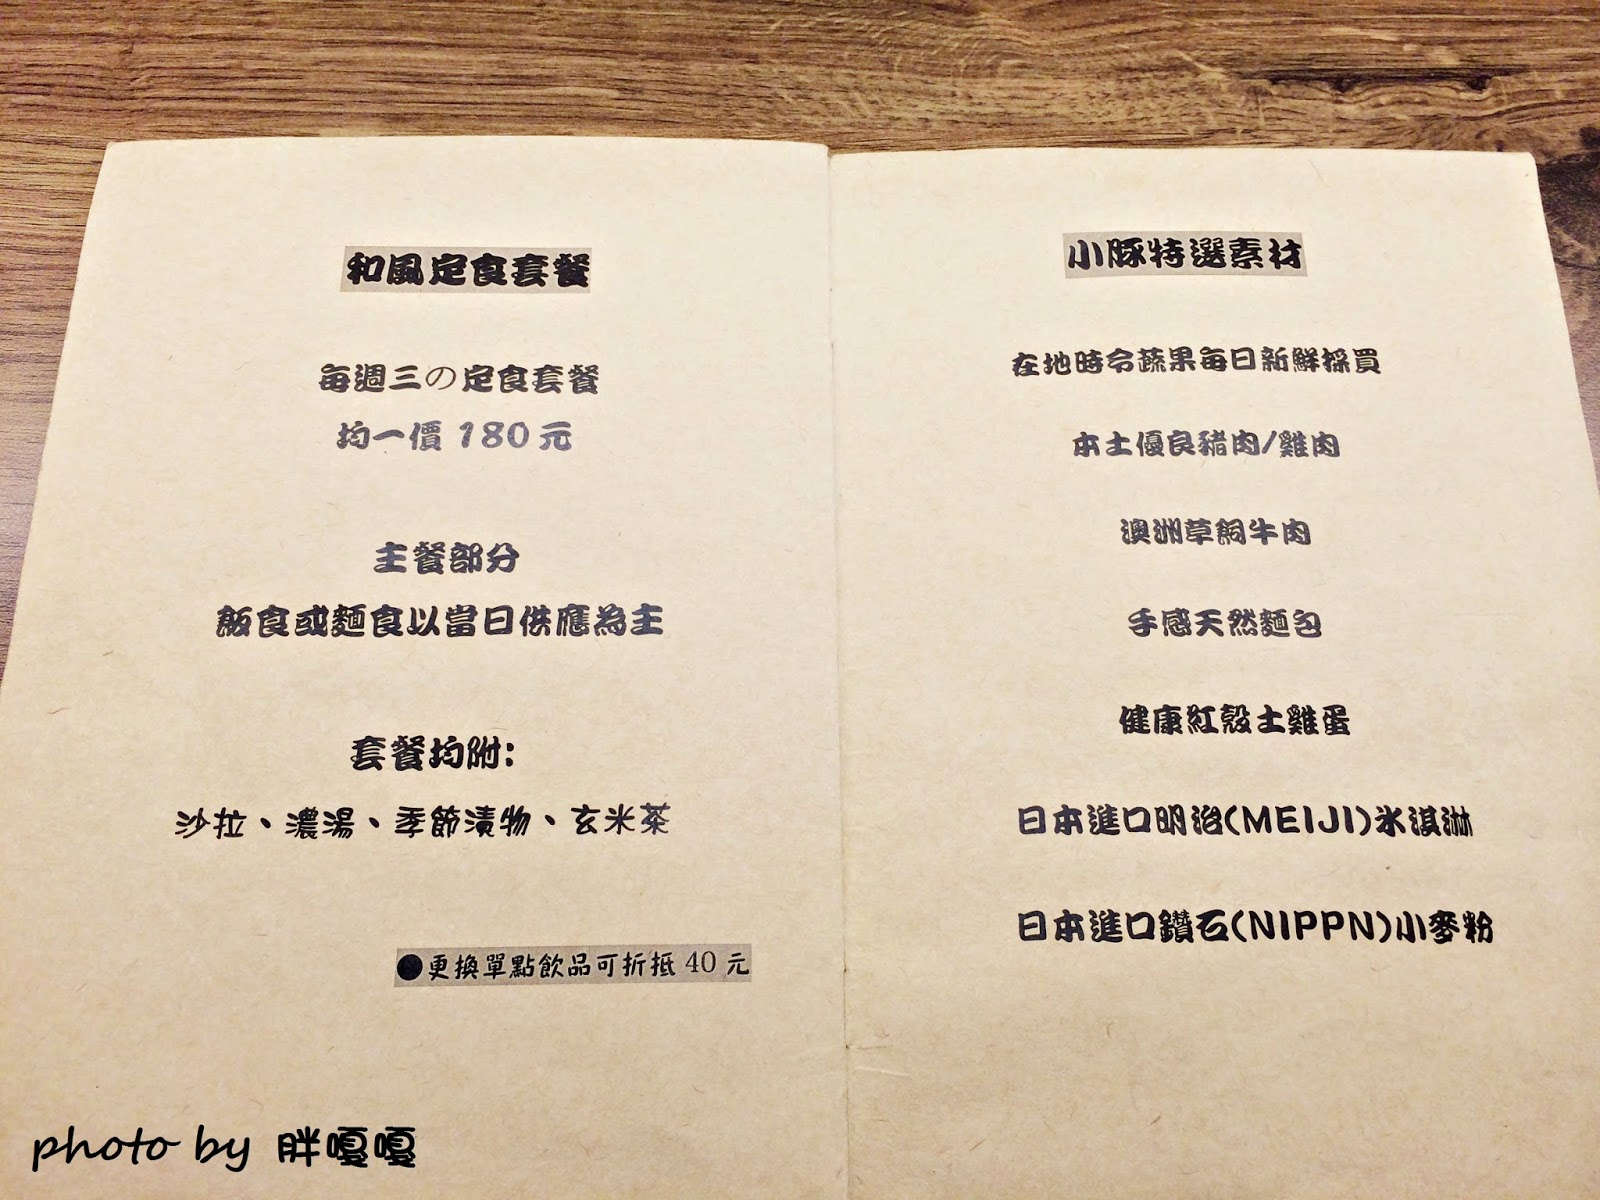 和風定食套餐
每週三の定食套餐
均一價 180 元
主餐部分
飯食或麵食以當日供應為主
套餐均附:
沙拉、濃湯、季節漬物、玄米茶
●更換單點飲品可折抵 40 元
小豚特選素材
在地時令蔬果每日新鮮採買
本土優良豬肉/雞肉
澳洲草飼牛肉
手感天然麵包
健康紅殼土雞蛋
日本進口明治(MEIJI)冰淇淋
日本進口鑽石(NIPPN)小麥粉
photo by 胖嘎嘎